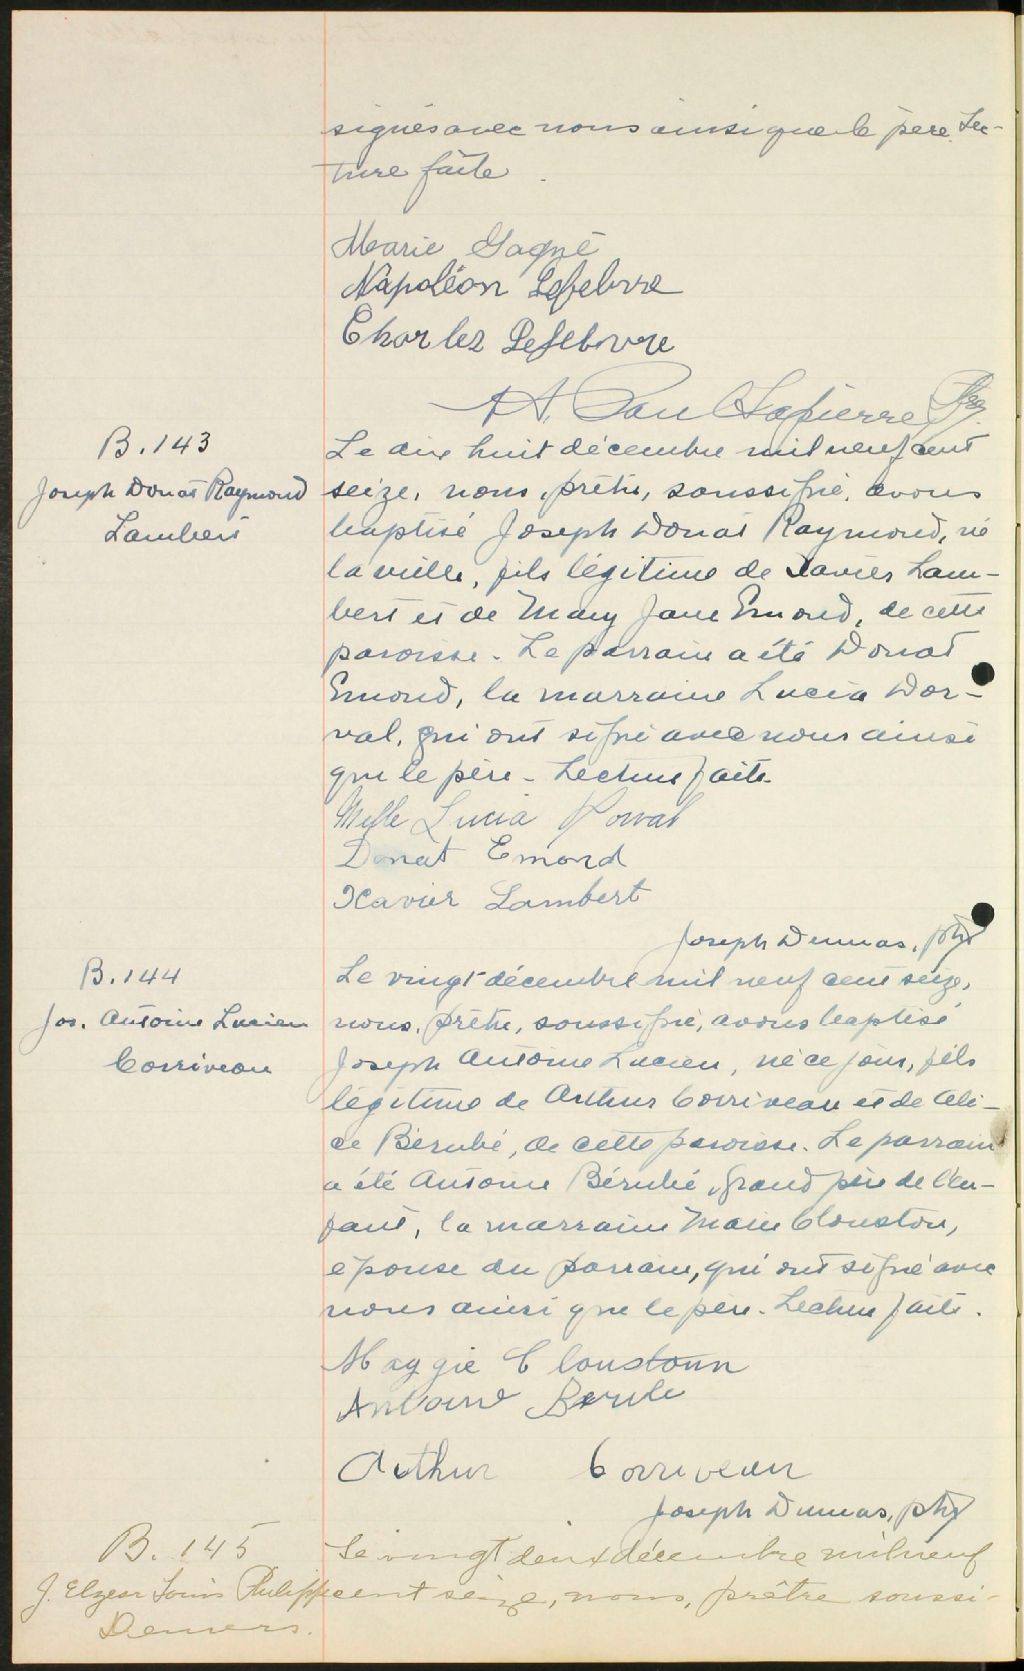 signés avec nous ainsi que le père. Lec-
ture faite.
Marie Gagné
Napoléon Lefebvre
Charles Lefebvre
Lapierre Ptre
B. 143
Joseph Donat Raymond
Lambert
Le dix huit décembre mil neuf cent
seize, nous, prêtre, soussigné, avons
baptisé Joseph Donat Raymond, né
la veille, fils légitime de Xavier Lam-
bert et de Mary Jane Emond, de cette
paroisse. Le parrain a été Donat
Emond, la marraine Lucia Dor-
val, qui ont signé avec nous ainsi
que le père. Lecture faite.
Melle Lucia Dorval
Donat Emond
Xavier Lambert
Joseph Dumas, ptre
B. 144
Jos. Antoine Lucien
Corriveau
Le vingt décembre mil neuf cent seize,
nous, prêtre, soussigné, avons baptisé
Joseph Antoine Lucien, né ce jour, fils
légitime de Arthur Corriveau et de Ali-
ce Bérubé, de cette paroisse. Le parrain
a été Antoine Bérubé, grand père de l'en-
fant, la marraine Marie Clouston,
épouse du parrain, qui ont signé avec
nous ainsi que le père. Lecture faite.
Maggie Cloustonn
Antoine Berube
Arthur Corriveau
Joseph Dumas, ptre
B. 145
J. Elzear Louis Philippe
Demers.
Le vingt deux décembre mil neuf
cent seize, nous, prêtre soussi-